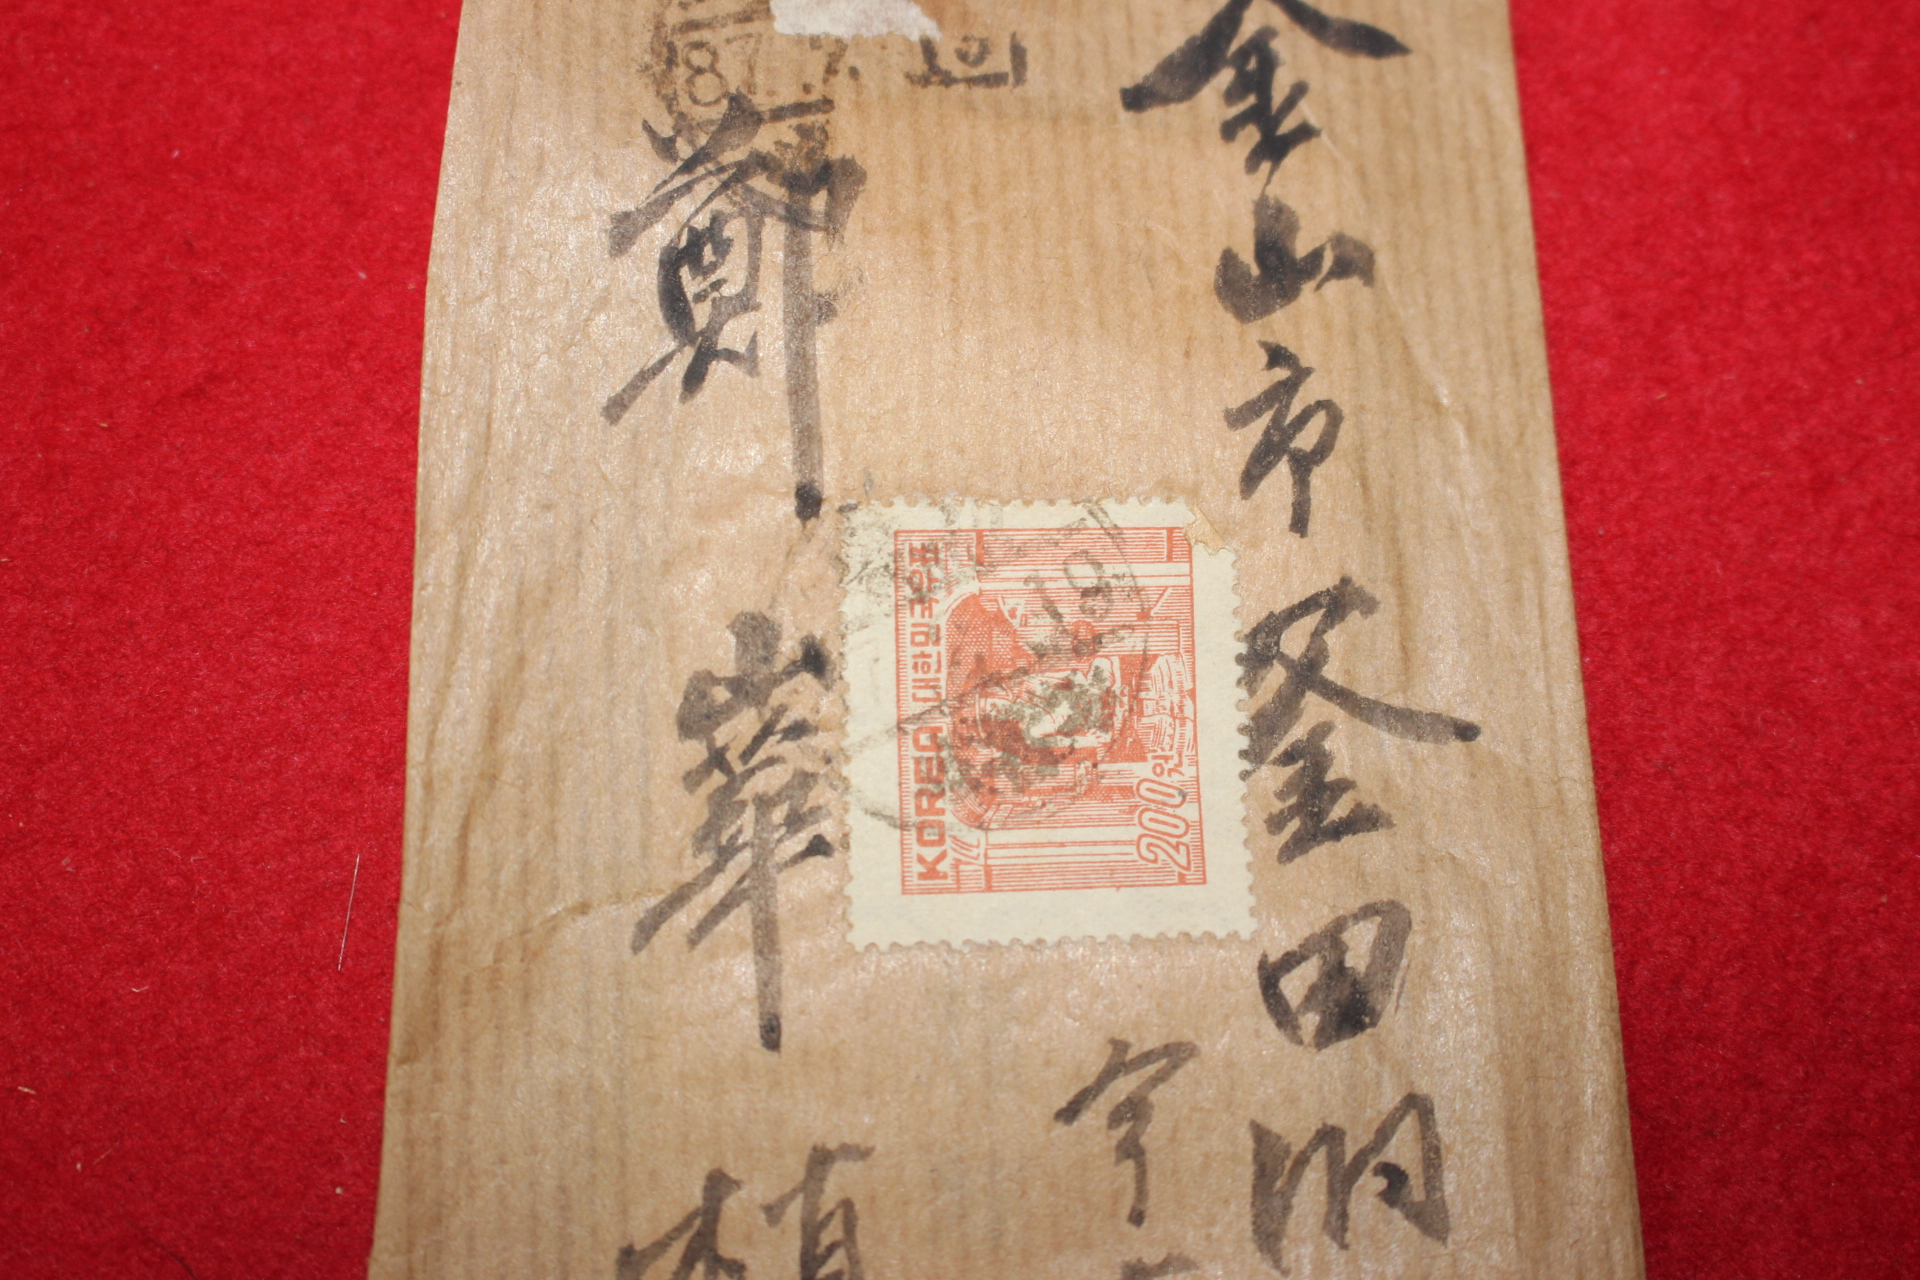 釜山市釜田洞
鄭崋
87. 7.
KOREA 대한민국우표
200원